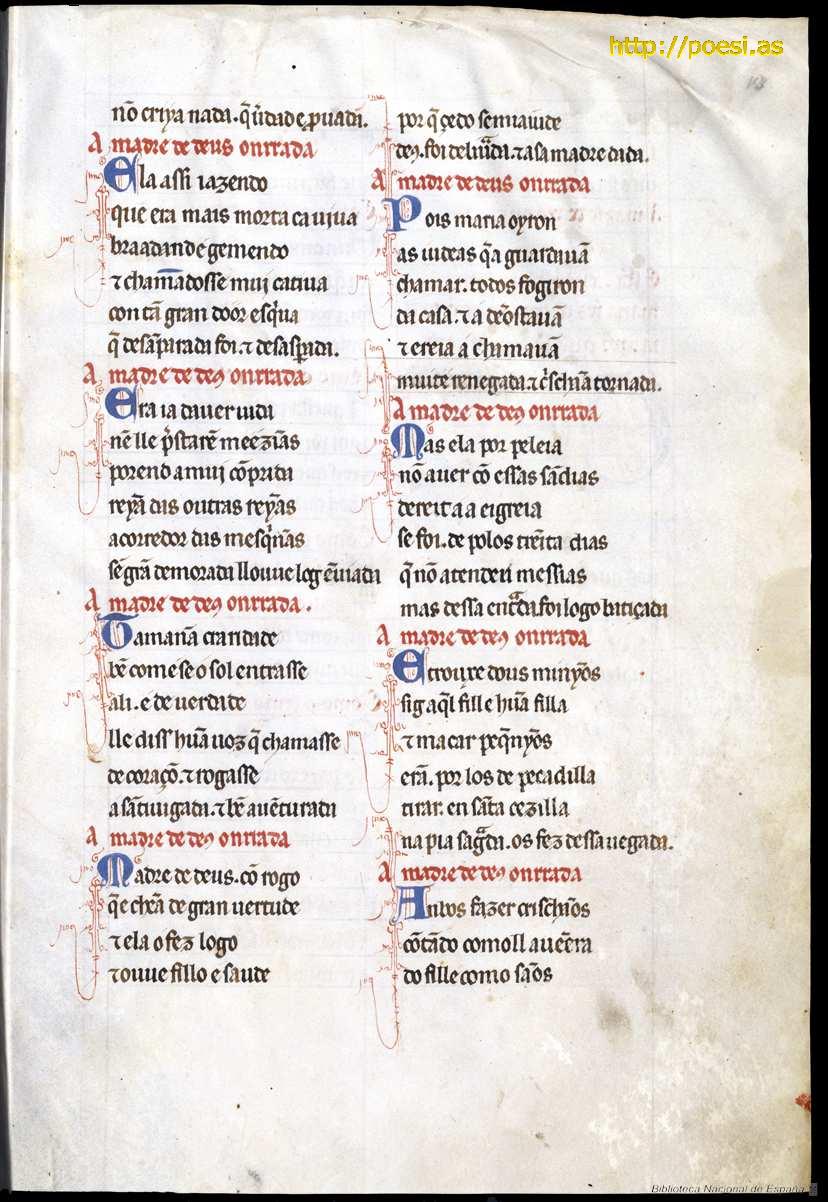 http://poesi.as
nõ criya nada. q̃ uĩdad e ꝓuada.
A madre de deus onrrada
Ela assi iazendo
que era mais morta ca uiua
braadand e gemendo
⁊ chamãdosse mui catiua
con tã gran door esq̃ua
q̃ desãparada foi. ⁊ desasperada.
A madre de deꝰ onrrada
Era ia dauer uida
nẽ lle prestarẽ meezĩas
porend a mui cõprida
reyã das outras reyñas
acorredor das mesq̃nas
sẽ grã demorada ll ouue log ẽuiada
A madre de deꝰ onrrada.
Tamana craridade
bẽ come se o sol entrasse
ali. e de uerdade
lle diss hũa uoz q̃ chamasse
de coraçõ. ⁊ rogasse
a sãtiuigada. ⁊ bẽ auẽturada
A madre de deꝰ onrrada
Madre de deus. cõ rogo
q̃ e chẽa de gran uertude
⁊ ela o fez logo
⁊ ouue fillo e saude
por q̃ çedo sen ataude
deꝰ. foi deliurada. ⁊ a sa madre dada.
A madre de deus onrrada
Pois maria oyron
as iudeas q̃ a guardauã
chamar. todos fogiron
da casa. ⁊ a dẽostauã
⁊ ereia a chamauã
muit e renegada ⁊ crischãa tornada.
A madre de deꝰ onrrada
Mas ela por peleia
nõ auer cõ essas sãdias
dereit a a eigreia
se foi. depolos trẽita dias
q̃ nõ atendeu messias
mas dessa encrada foi logo batiçada
A madre de deꝰ onrrada
E trouxe dous minỹos
sig aq̃l fill e hũa filla
⁊ macar peq̃nỹos
erã. por los de pecadilla
tirar. en sãta cezilla
na pia sagrada. os fez dessa uegada.
A madre de deꝰ onrrada
Anbos fazer crischãos
cõtãdo como ll auẽera
do fill e como sãos
Biblioteca Nacional de España